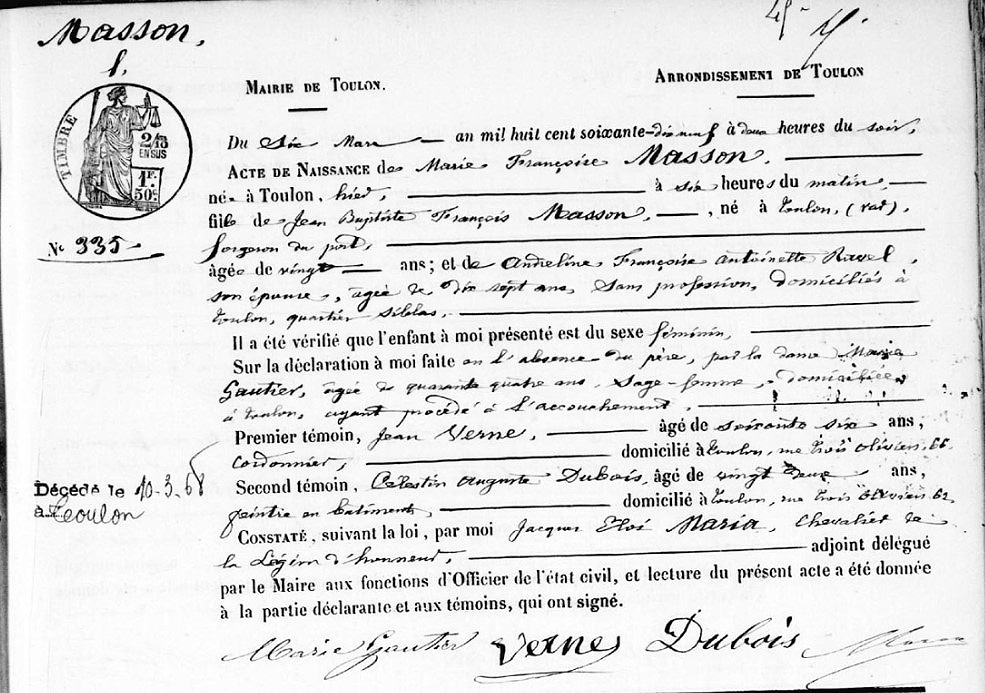 Masson,
TIMBRE
2/10
EN SUS
1F.
50c.
MAIRIE DE TOULON.
ARRONDISSEMENT DE TOULON
Nº 335
Du Six Mars — an mil huit cent soixante-dix neuf à deux heures du soir,
ACTE DE NAISSANCE de Marie Françoise Masson. —
née à Toulon, hier, — à six heures du matin, —
fille de Jean Baptiste François Masson, —, né à Toulon, (var),
forgeron du port, —
âgé de vingt — ans; et de Françoise Antoinette Ravel,
son épouse, âgée de dix sept ans, sans profession, domiciliés à
Toulon, quartier Siblas, —
Il a été vérifié que l'enfant à moi présenté est du sexe féminin, —
Sur la déclaration à moi faite en l'absence du père, par la dame Marie
Gautier, âgée de quarante quatre ans, sage-femme, domiciliée
à Toulon, ayant procédé à l'accouchement, —
Premier témoin, Jean Verne, — âgé de soixante six ans,
cordonnier, — domicilié à Toulon, rue trois oliviers, 66.
Second témoin, Célestin Auguste Dubois, âgé de vingt deux ans,
peintre en bâtiments, — domicilié à Toulon, rue trois oliviers 62.
CONSTATÉ, suivant la loi, par moi Jacques Eloi Maria, Chevalier de
la Légion d'honneur, — adjoint délégué
par le Maire aux fonctions d'Officier de l'état civil, et lecture du présent acte a été donnée
à la partie déclarante et aux témoins, qui ont signé.
Décédé le 10-3-68
à Toulon
Marie Gautier Verne Dubois